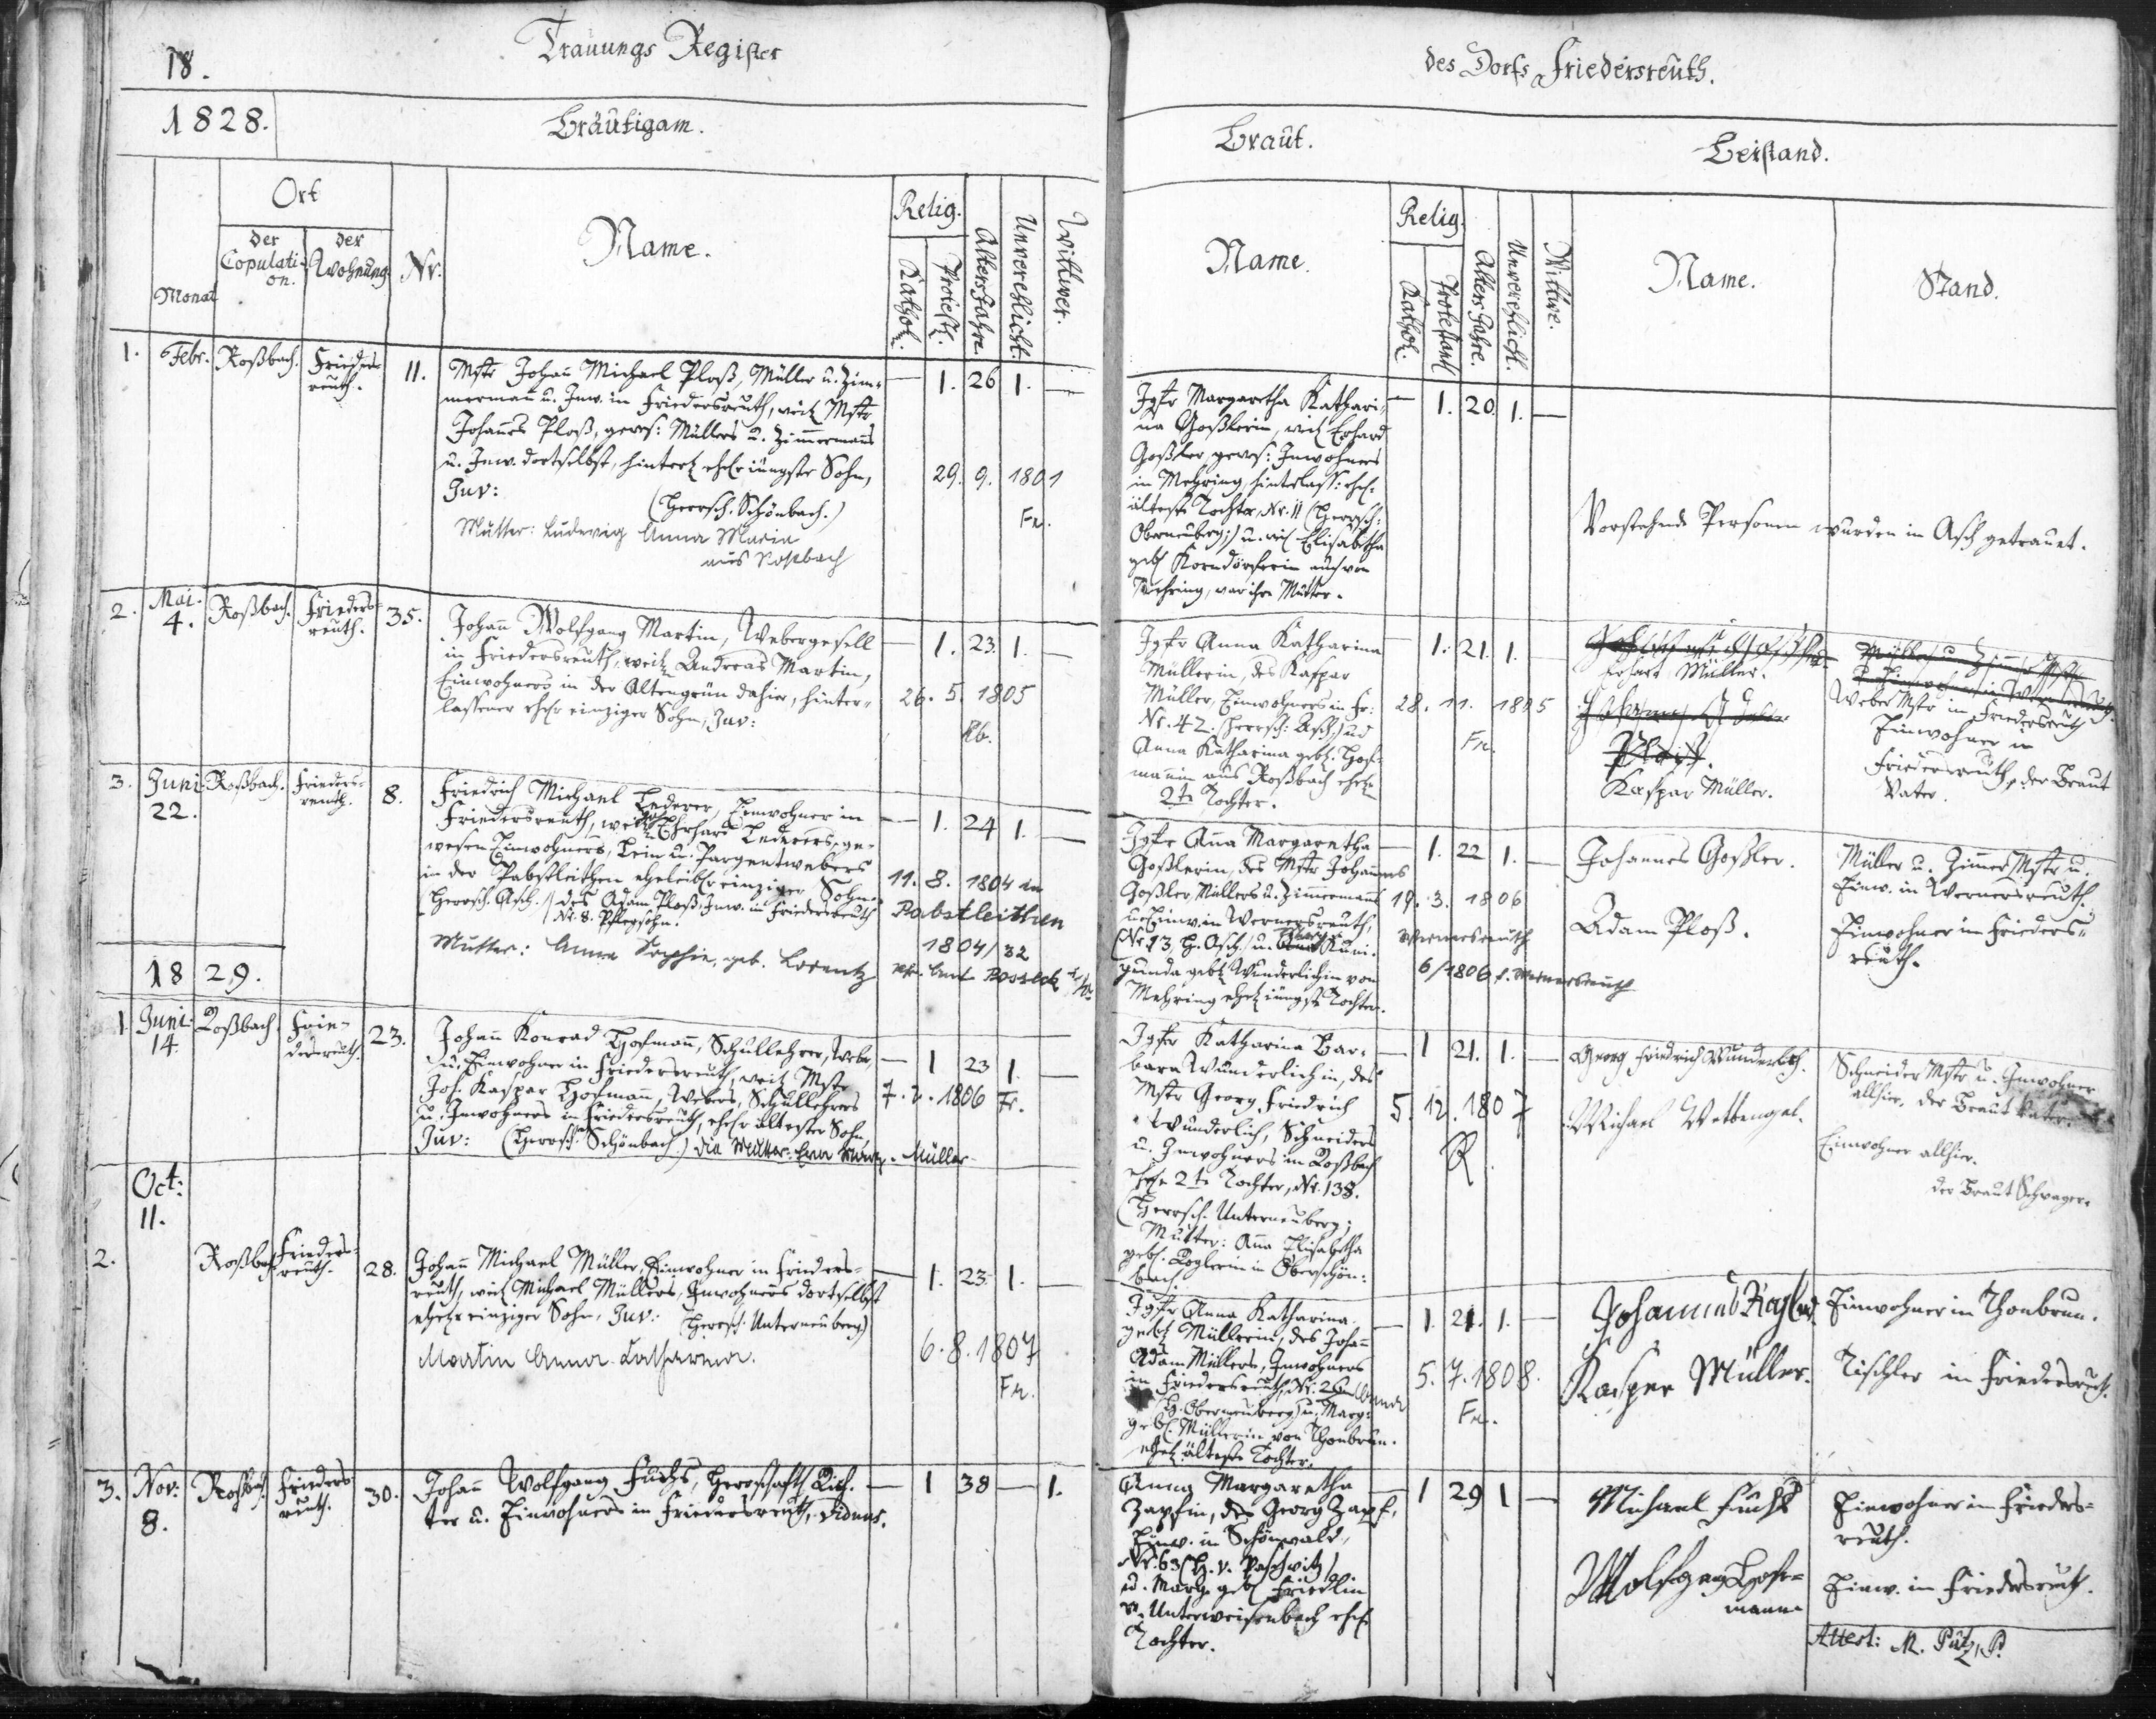 18.
Trauungs Register
des Dorfs Friedersreuth.
1828.
Bräutigam.
Braut.
Beistand.
Monat
Ort
der Copulati-
on.
der Wohnung
Nr.
Name.
Relig.
Kathol.
Protest.
Alters Jahre.
Unverehlicht.
Wittwer.
Name.
Relig.
Kathol.
Protestant
Alters Jahre.
Unverehlicht.
Wittwe.
Name.
Stand.
1. Febr. Roßbach. Frieders-
reuth.
11.
Mstr Johann Michael Ploß, Müller u. Zim-
mermann u. Inw. in Friedersreuth, weil. Mstr
Johannes Ploß, gewes: Müllers u. Zimmermanns
u. Inw. dortselbst, hinterl. ehel. jüngster Sohn,
Juv: (Herrsch. Schönbach.)
Mutter: Ludwig Anna Maria
aus Roßbach
— 1. 26 1. —
29. 9. 1801
Fr.
Jgfr Margaretha Kathari-
na Goßlerin, weil. Erhard
Goßler, gewes: Inwohners
in Mehring, hinterlass: ehel.
älteste Tochter, Nr. 11 (Herrsch:
Oberneuberg;) u. weil. Elisabetha
geb. Korndörferin auch von
Mehring, war ihre Mutter.
— 1. 20. 1. —
Vorstehende Personen wurden in Asch getrauet.
2. Mai. 4. Roßbach. Frieders-
reuth.
35.
Johann Wolfgang Martin, Webergesell
in Friedersreuth, weil. Andreas Martin,
Einwohners in der Altengrün dahier, hinter-
lassener ehel. einziger Sohn, Juv:
— 1. 23. 1. —
26. 5. 1805
Rb.
Jgfr Anna Katharina
Müllerin, des Kaspar
Müller, Einwohners in Fr:
Nr. 42. (Herrsch: Asch) u.
Anna Katharina geb. Hof-
mannin aus Roßbach ehel.
2te Tochter.
— 1. 21. 1. —
28. 11.
Fr.
Erhart Müller.
Ploß.
Kaspar Müller.
Weber Mstr in Friedersreuth
Einwohner in
Friedersreuth, der Braut
Vater.
3. Juni 22. Roßbach. Frieders-
reuth.
8.
Friedrich Michael Lederer, Einwohner in
Friedersreuth, weil. Erhard Lederers, ge-
wesen Einwohners, Lein u. Pargentwebers
in der Pabstleithen eheleibl. einziger Sohn.
Herrsch. Asch. / des Adam Ploß, Inw. in Friedersreuth
Nr. 8. Pflegsohn.
Mutter: Anna Sophie, geb. Lorentz
— 1. 24 1. —
11. 8. 1804 in
Pabstleithen
1804/32
Jgfr Anna Margaretha
Goßlerin, des Mstr Johannes
Goßler, Müllers u. Zimmermanns
u. Einw. in Wernersreuth,
(Nr. 13. H. Asch,) u. Kuni-
gunda geb. Wunderlichin von
Mehring ehel. jüngste Tochter.
— 1. 22 1. —
19. 3. 1806
Wernersreuth
6/1806 f. Wernersreuth
Johannes Goßler.
Adam Ploß.
Müller u. Zimmer Mstr u.
Einw. in Wernersreuth.
Einwohner in Frieders-
reuth.
1829.
1. Juni 14. Roßbach Frie-
dersreuth.
23.
Johann Konrad Hofmann, Schullehrer, Weber,
u. Einwohner in Friedersreuth, weil. Mstr
Joh. Kaspar Hofmann, Webers, Schullehrers
u. Inwohners in Friedersreuth, ehel. ältester Sohn,
Juv: (Herrsch. Schönbach.) die Mutter: Müller
— 1 23 1. —
7. 2. 1806 Fr.
Jgfr Katharina Bar-
bara Wunderlichin, des
Mstr Georg Friedrich
Wunderlich, Schneiders
u. Inwohners in Roßbach
ehel. 2te Tochter, Nr. 138.
(Herrsch. Unterneuberg;
Mutter: Anna Elisabetha
geb. Roglerin in Oberschön-
bach.
— 1 21. 1. —
5. 12. 1807
R
Georg Friedrich Wunderlich.
Michael Wettengel.
Schneider Mstr u. Inwohner
allhier, der Braut Vater.
Einwohner allhier.
der Braut Schwager.
Oct: 11.
2. Roßbach Frieders-
reuth.
28.
Johann Michael Müller, Einwohner in Frieders-
reuth, weil. Michael Müllers, Inwohners dortselbst
ehel. einziger Sohn, Juv: (Herrsch. Unterneuberg)
Martin Anna Katharina.
— 1. 23. 1. —
6. 8. 1807
Fr.
Jgfr Anna Katharina
geb. Müllerin, des Johann
Adam Müllers, Inwohners
in Friedersreuth, Nr: 26
(H. Oberneuberg) u. Marg:
geb. Müllerin von Thonbrun.
ehel. älteste Tochter.
— 1. 21. 1. —
5. 7. 1808.
Fr.
Johannes Rogler.
Kaspar Müller.
Einwohner in Thonbrun.
Tischler in Friedersreuth.
3. Nov: 8. Roßbach Frieders-
reuth.
30.
Johann Wolfgang Fuchs, Herrschaftl. Rich-
ter u. Einwohners in Friedersreuth, Viduus.
— 1 38 — 1.
Anna Margaretha
Zapfin, des Georg Zapf,
Einw. in Schönwald,
Nr. 63 (H. v. Paschwitz)
u. Marg. geb. Friedlin
v. Unterweisenbach ehel.
Tochter.
— 1 29 1 —
Michael Fuchs
Wolfgang Hof-
mann
Einwohner in Frieders-
reuth.
Einw. in Friedersreuth.
Attest: M. Pütz, P.